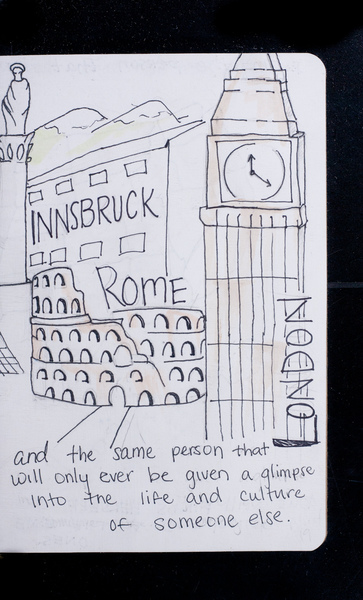 INNSBRUCK
ROME
LONDON
and the same person that
will only ever be given a glimpse
into the life and culture
of someone else.